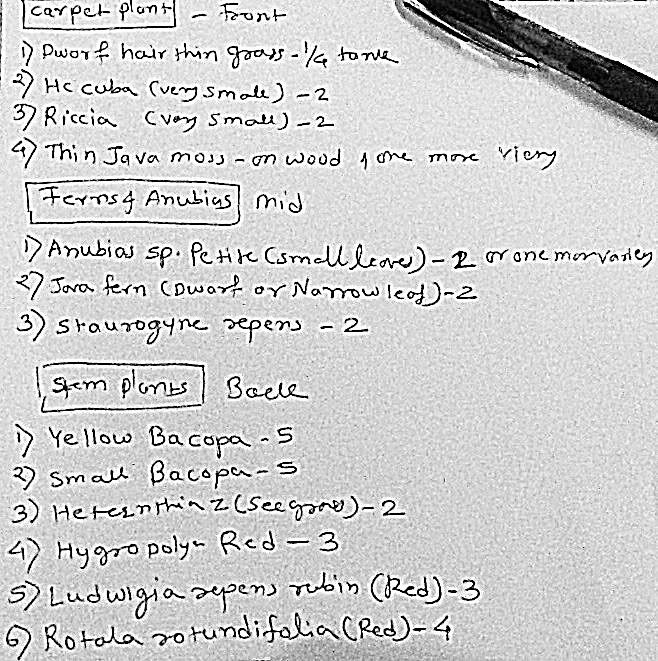 carpet plant - Front
1) Dworf hair thin grass - 1/4 
2) Hc cuba (very small) - 2
3) Riccia (very small) - 2
4) Thin Java moss - on wood & one more
Ferns & Anubias mid
1) Anubias sp. Petite (small leaves) - 2 or one mor
2) Java fern (Dwarf or Narrow leaf) - 2
3) staurogyne repens - 2
Stem plants Back
1) Yellow Bacopa - 5
2) Small Bacopa - 5
3) (See grass) - 2
4) Hygro polyn Red - 3
5) Ludwigia repens rubin (Red) - 3
6) Rotala rotundifolia (Red) - 4